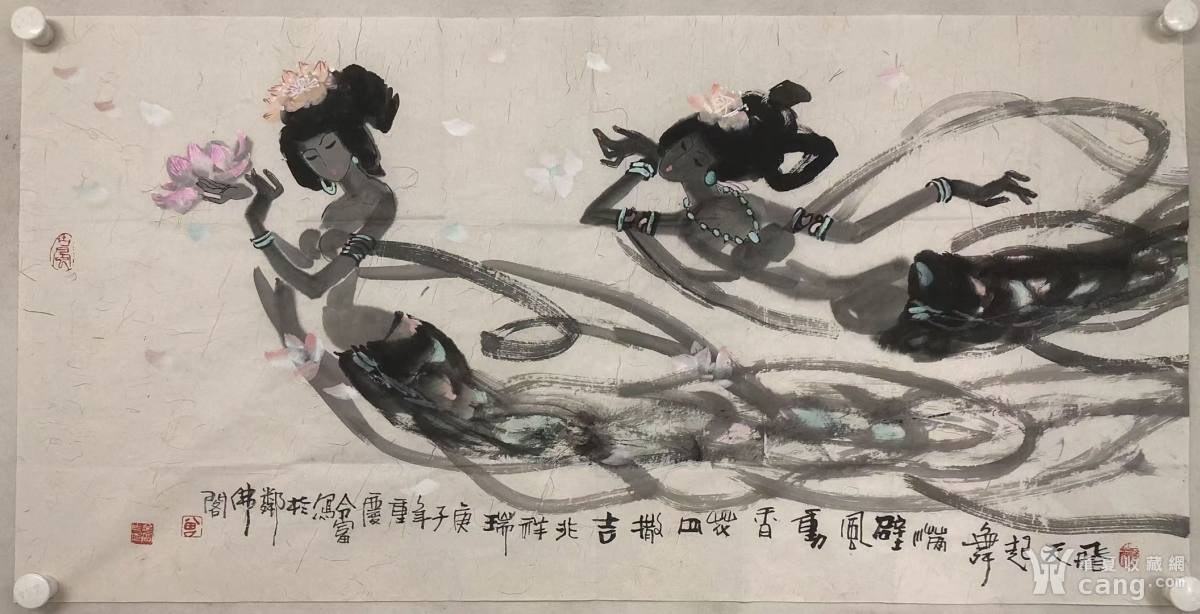 飛天起舞滿壁風動香花四撒吉兆祥瑞庚子年重慶分富寫於鄰佛閣
华夏收藏網
cang.com